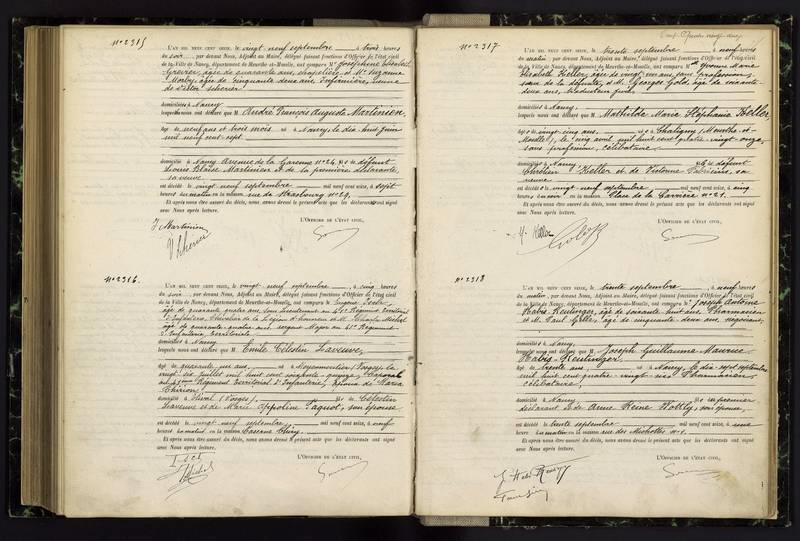 N° 2315
L'AN MIL NEUF CENT SEIZE, le vingt neuf septembre à trois heures
du soir, par devant Nous, Adjoint au Maire, délégué faisant fonctions d'Officier de l'état civil
de la Ville de Nancy, département de Meurthe-et-Moselle, ont comparu Me Joséphine
âgée de quarante ans, et Me Suzanne
âgée de cinquante deux ans, infirmière,
domiciliés à Nancy
lesquels nous ont déclaré que M. André François Auguste Martinien
âgé de neuf ans et trois mois né à Nancy, le dix huit juin
mil neuf cent sept
domicilié à Nancy Avenue de la Garenne N° 24, fils de défunt
Louis Blaise Martinien et de la première déclarante,
sa veuve
est décédé le vingt neuf septembre mil neuf cent seize, à sept
heures du matin en la maison rue de Strasbourg N° 29,
Et après nous être assuré du décès, nous avons dressé le présent acte que les déclarants ont signé
avec Nous après lecture.
L'OFFICIER DE L'ÉTAT CIVIL,
J Martinien
N° 2316.
L'AN MIL NEUF CENT SEIZE, le vingt neuf septembre, à cinq heures
du soir, par devant Nous, Adjoint au Maire, délégué faisant fonctions d'Officier de l'état civil
de la Ville de Nancy, département de Meurthe-et-Moselle, ont comparu M. Eugène
âgé de quarante quatre ans, sous Lieutenant au 41e Régiment territorial
d'Infanterie, Chevalier de la Légion d'honneur et M. Charles Michel
âgé de quarante quatre ans, sergent Major au 41e Régiment
d'Infanterie territoriale
domiciliés à Nancy
lesquels nous ont déclaré que M. Emile Célestin Laveuve,
âgé de quarante un ans, né à (Vosges) le
vingt six juillet mil huit cent soixante quinze, Caporal
au Régiment territorial d'Infanterie, époux de Maria
domicilié à (Vosges) fils de Célestin
Laveuve et de Marie Appoline Paquot, son épouse
est décédé le vingt neuf septembre mil neuf cent seize, à neuf
heures du matin en la maison Caserne Thiry
Et après nous être assuré du décès, nous avons dressé le présent acte que les déclarants ont signé
avec Nous après lecture.
L'OFFICIER DE L'ÉTAT CIVIL,
N° 2317
L'AN MIL NEUF CENT SEIZE, le trente septembre à neuf heures
du matin, par devant Nous, Adjoint au Maire, délégué faisant fonctions d'Officier de l'état civil
de la Ville de Nancy, département de Meurthe-et-Moselle, ont comparu Melle Yvonne Marie
Elisabeth Keller, âgée de vingt un ans, sans profession,
sœur de la défunte, et M. Georges Golé, âgé de soixante
deux ans,
domiciliés à Nancy
lesquels nous ont déclaré que M. Mathilde Marie Stéphanie Keller
âgée de vingt cinq ans, née à Chaligny (Meurthe et
Moselle), le cinq avril mil huit cent quatre vingt onze,
sans profession, célibataire
domiciliée à Nancy, fille de défunt
Chrétien Keller et de Victorine Fabricius, sa
veuve
est décédée le vingt neuf septembre mil neuf cent seize, à cinq
heures du soir en la maison Place de la Carrière N° 21.
Et après nous être assuré du décès, nous avons dressé le présent acte que les déclarants ont signé
avec Nous après lecture.
L'OFFICIER DE L'ÉTAT CIVIL,
Y. Keller
N° 2318
L'AN MIL NEUF CENT SEIZE, le trente septembre, à neuf heures
du matin, par devant Nous, Adjoint au Maire, délégué faisant fonctions d'Officier de l'état civil
de la Ville de Nancy, département de Meurthe-et-Moselle, ont comparu M. Joseph Antoine
âgé de soixante huit ans, Pharmacien
et M. Paul âgé de cinquante deux ans, négociant,
domiciliés à Nancy
lesquels nous ont déclaré que M. Joseph Guillaume Maurice
âgé de trente ans, né à Nancy, le dix sept septembre
mil huit cent quatre vingt six Pharmacien
célibataire
domicilié à Nancy, fils du premier
déclarant et de Anne Reine son épouse,
est décédé le trente septembre mil neuf cent seize, à une
heure du matin en la maison rue des Michottes N° 1.
Et après nous être assuré du décès, nous avons dressé le présent acte que les déclarants ont signé
avec Nous après lecture.
L'OFFICIER DE L'ÉTAT CIVIL,